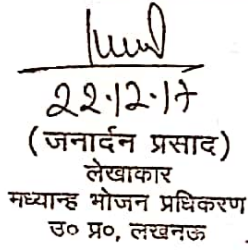 22.12.17
(जनार्दन प्रसाद)
लेखाकार
मध्यान्ह भोजन प्रधिकरण
उ० प्र०, लखनऊ